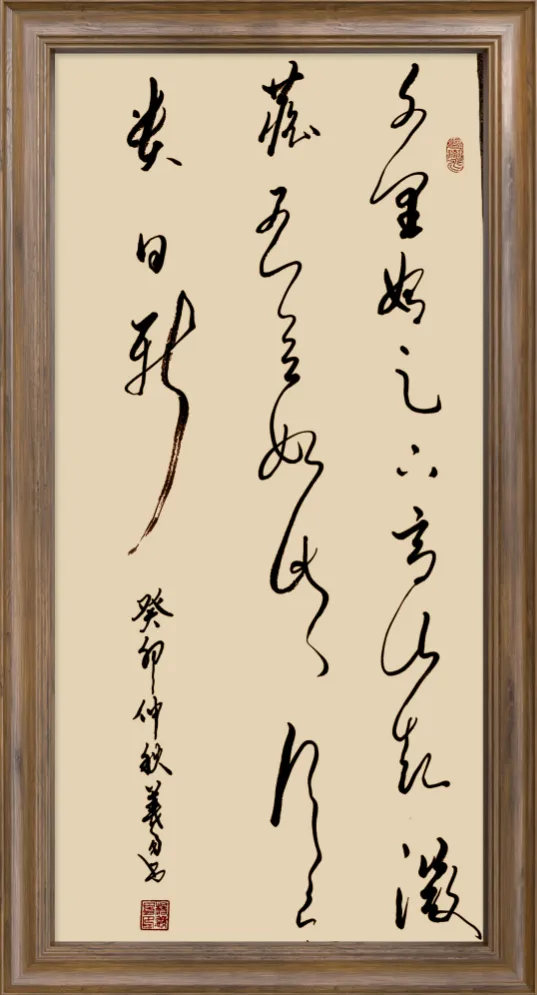 千里始足下高山起微
塵吾道亦如此行之
貴日新
癸卯仲秋義